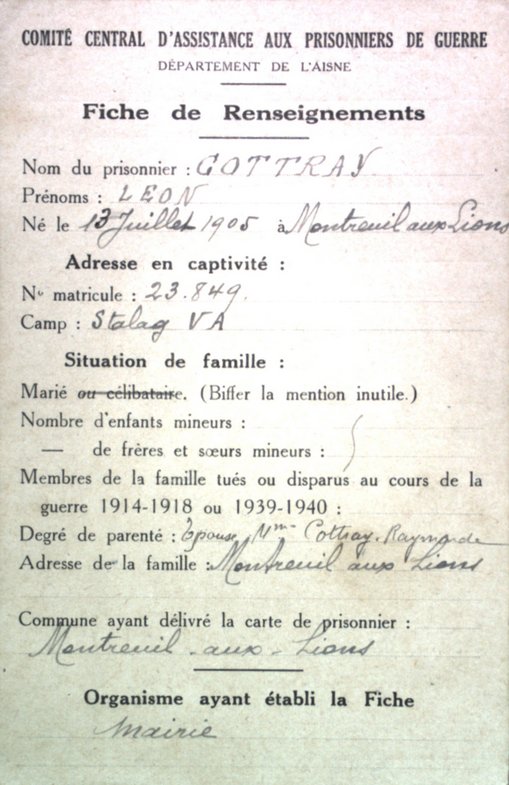 COMITÉ CENTRAL D'ASSISTANCE AUX PRISONNIERS DE GUERRE
DÉPARTEMENT DE L'AISNE
Fiche de Renseignements
Nom du prisonnier : COTTRAY
Prénoms : LEON
Né le 13 Juillet 1905 à Montreuil aux Lions
Adresse en captivité :
N° matricule : 23.849.
Camp : Stalag VA
Situation de famille :
Marié ou célibataire. (Biffer la mention inutile.)
Nombre d'enfants mineurs :
— de frères et sœurs mineurs :
Membres de la famille tués ou disparus au cours de la
guerre 1914-1918 ou 1939-1940 :
Degré de parenté : Epouse Mme Cottray-Raymonde
Adresse de la famille : Montreuil aux Lions
Commune ayant délivré la carte de prisonnier :
Montreuil-aux-Lions
Organisme ayant établi la Fiche
Mairie